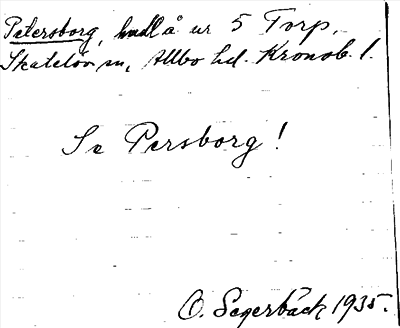 Petersborg, hmdl å ur 5 Torp,
Skatelöv sn, Allbo hd. Kronob. l.
Se Persborg!
O. Segerbäck 1935.